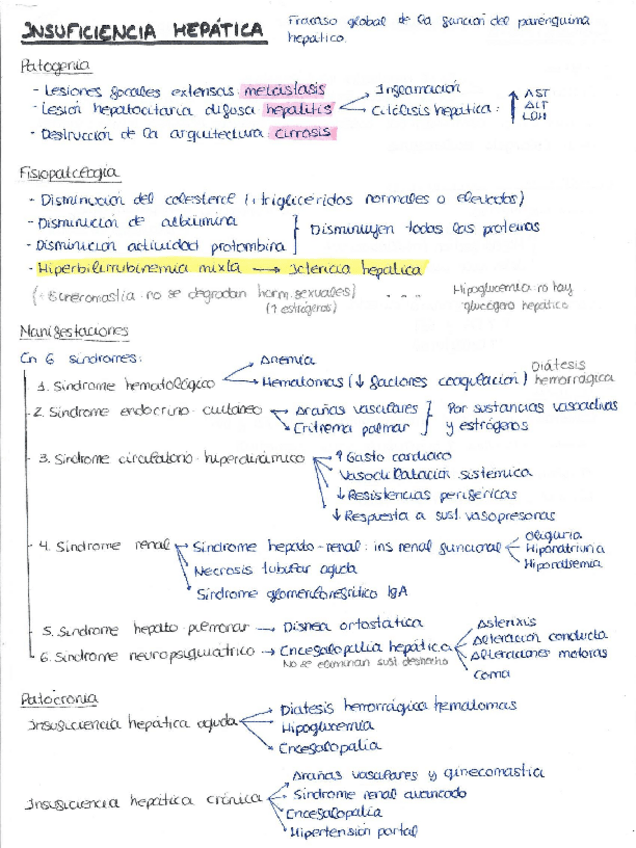 INSUFICIENCIA HEPÁTICA Fracaso global de la función del parénquima hepático.
Patogenia
- Lesiones focales extensas metástasis
- Lesión hepatocitaria difusa hepatitis
Inflamación
Citólisis hepática: ↑ AST ALT LDH
- Destrucción de la arquitectura cirrosis
Fisiopatología
- Disminución del colesterol (triglicéridos normales o elevados)
- Disminución de albúmina
- Disminución actividad protombina
Disminuyen todas las proteínas
- Hiperbilirrubinemia mixta → Ictericia hepática
no se degradan horm. sexuales) (↑ estrógeros)
Hipoglucemia no hay glucógeno hepático
Manifestaciones
En 6 síndromes:
1. Síndrome hematológico
Anemia
Hematomas (↓ factores coagulación) Diátesis hemorrágica
2. Síndrome endocrino cutáneo
Arañas vasculares
Eritrema palmar
Por sustancias vasoactivas y estrógenos
3. Síndrome circulatorio hiperdinámico
↑ Gasto cardiaco
Vasodilatación sistémica
↓ Resistencias periféricas
↓ Respuesta a sust. vasopresoras
4. Síndrome renal
Síndrome hepato-renal: ins renal funcional
Oliguria
Hiponatriuria
Necrosis tubular aguda
Síndrome glomerulonefrítico IgA
5. Síndrome hepato pulmonar → Disnea ortostática
6. Síndrome neuropsiquiátrico → Encefalopatía hepática
No se eliminan sust. deshecho
Asterixis
Alteración conducta
Alteraciones motoras
Coma
Patocronia
Insuficiencia hepática aguda
Diátesis hemorrágica hematomas
Hipoglucemia
Encefalopatía
Insuficiencia hepática crónica
Arañas vasculares y ginecomastia
Síndrome renal avanzado
Encefalopatía
Hipertensión portal